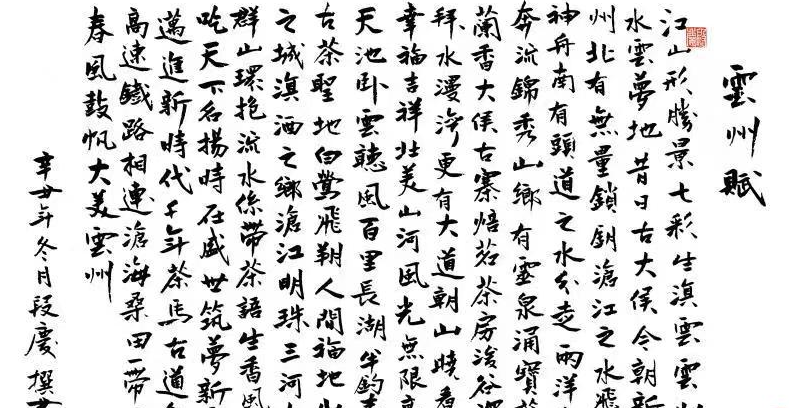 雲州賦
江山形勝景七彩生滇雲雲
水雲夢地昔日古大侯今朝新
州北有無量鎖鑰滄江之水飛
神舟南有頭道之水分走兩洋
奔流錦秀山鄉有靈泉涌寶
蘭香大侯古寨焙茗茶房浚谷
拜水漫灣更有大道朝山曉看
幸福吉祥壯美山河風光無限
天池卧雲聽風百里長湖坐釣
古茶聖地白鶯飛翔人間福地
之城滇酒之鄉滄江明珠三河
群山環抱流水係帶茶語生香風
吃天下名揚時在盛世筑夢新
邁進新時代千年茶馬古道
高速鐵路相連滄海桑田一帶
春風鼓帆大美雲州
辛丑年冬月段慶撰